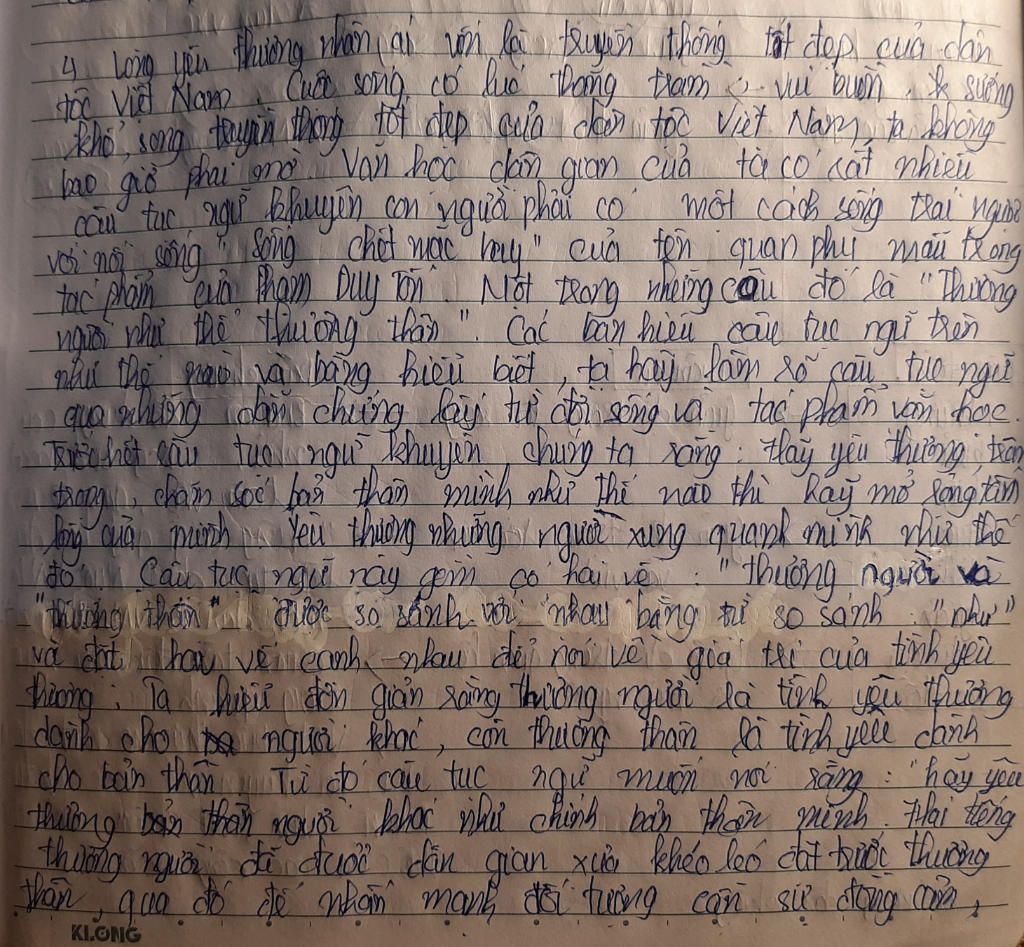 4 Lòng yêu thương nhân ái vốn là truyền thống tốt đẹp của dân
tộc Việt Nam. Cuộc sống có lúc thăng trầm, vui buồn, sướng
khổ, song truyền thống tốt đẹp của dân tộc Việt Nam, ta không
bao giờ phai mờ. Văn học dân gian của ta có rất nhiều
câu tục ngữ khuyên con người phải có một cách sống trái ngược
với nối sống "sống chết mặc bay" của tên quan phụ mẫu trong
tác phẩm của Phạm Duy Tốn. Một trong những câu đó là "Thương
người như thể thương thân". Các bạn hiểu câu tục ngữ trên
như thế nào và bằng hiểu biết, ta hãy làm rõ câu tục ngữ
qua những dẫn chứng lấy từ đời sống và tác phẩm văn học.
Trước hết câu tục ngữ khuyên chúng ta rằng: Hãy yêu thương, trân
trọng, chăm sóc bản thân mình như thế nào thì hãy mở rộng tấm
lòng của mình. Yêu thương những người xung quanh mình như thế
đó. Câu tục ngữ này gồm có hai vế: "thương người và
"thương thân" được so sánh với nhau bằng từ so sánh "như"
và đặt hai vế cạnh nhau để nói về giá trị của tình yêu
thương. Ta hiểu đơn giản rằng thương người là tình yêu thương
dành cho người khác, còn thương thân là tình yêu dành
cho bản thân. Từ đó câu tục ngữ muốn nói rằng: "hãy yêu
thương bản thân người khác như chính bản thân mình. Hai tiếng
thương người đã được dân gian xưa khéo léo đặt trước thương
thân, qua đó để nhấn mạnh đối tượng cần sự đồng cảm,
KLONG